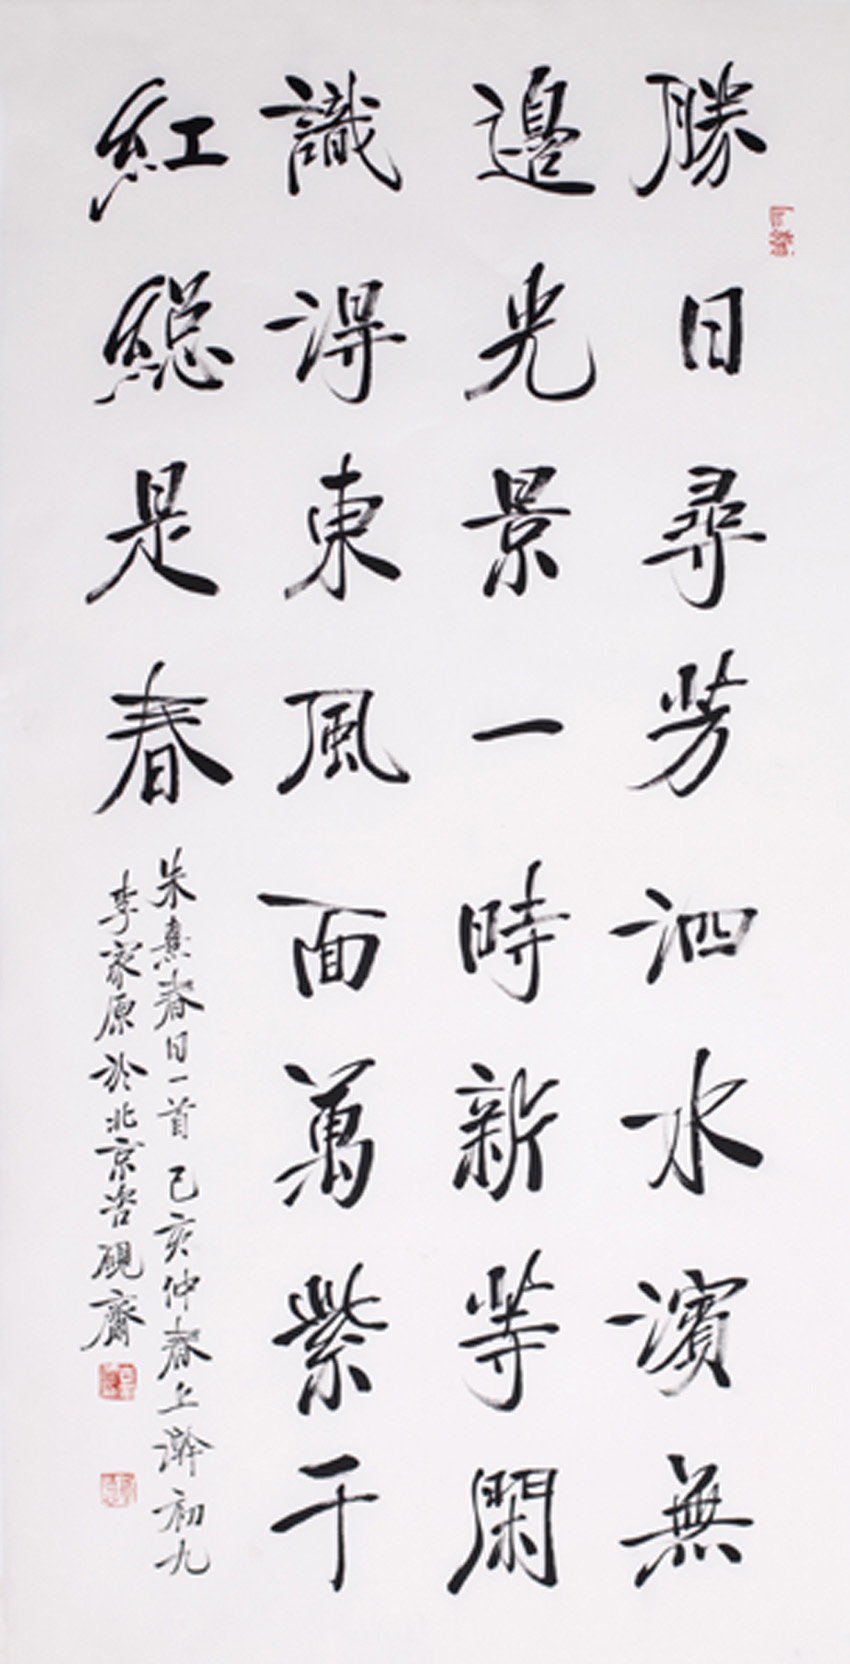 勝日尋芳泗水濱無
邊光景一時新等閑
識得東風面萬紫千
紅總是春
朱熹春日一首 己亥仲春上澣初九
李家原於北京岩硯齋